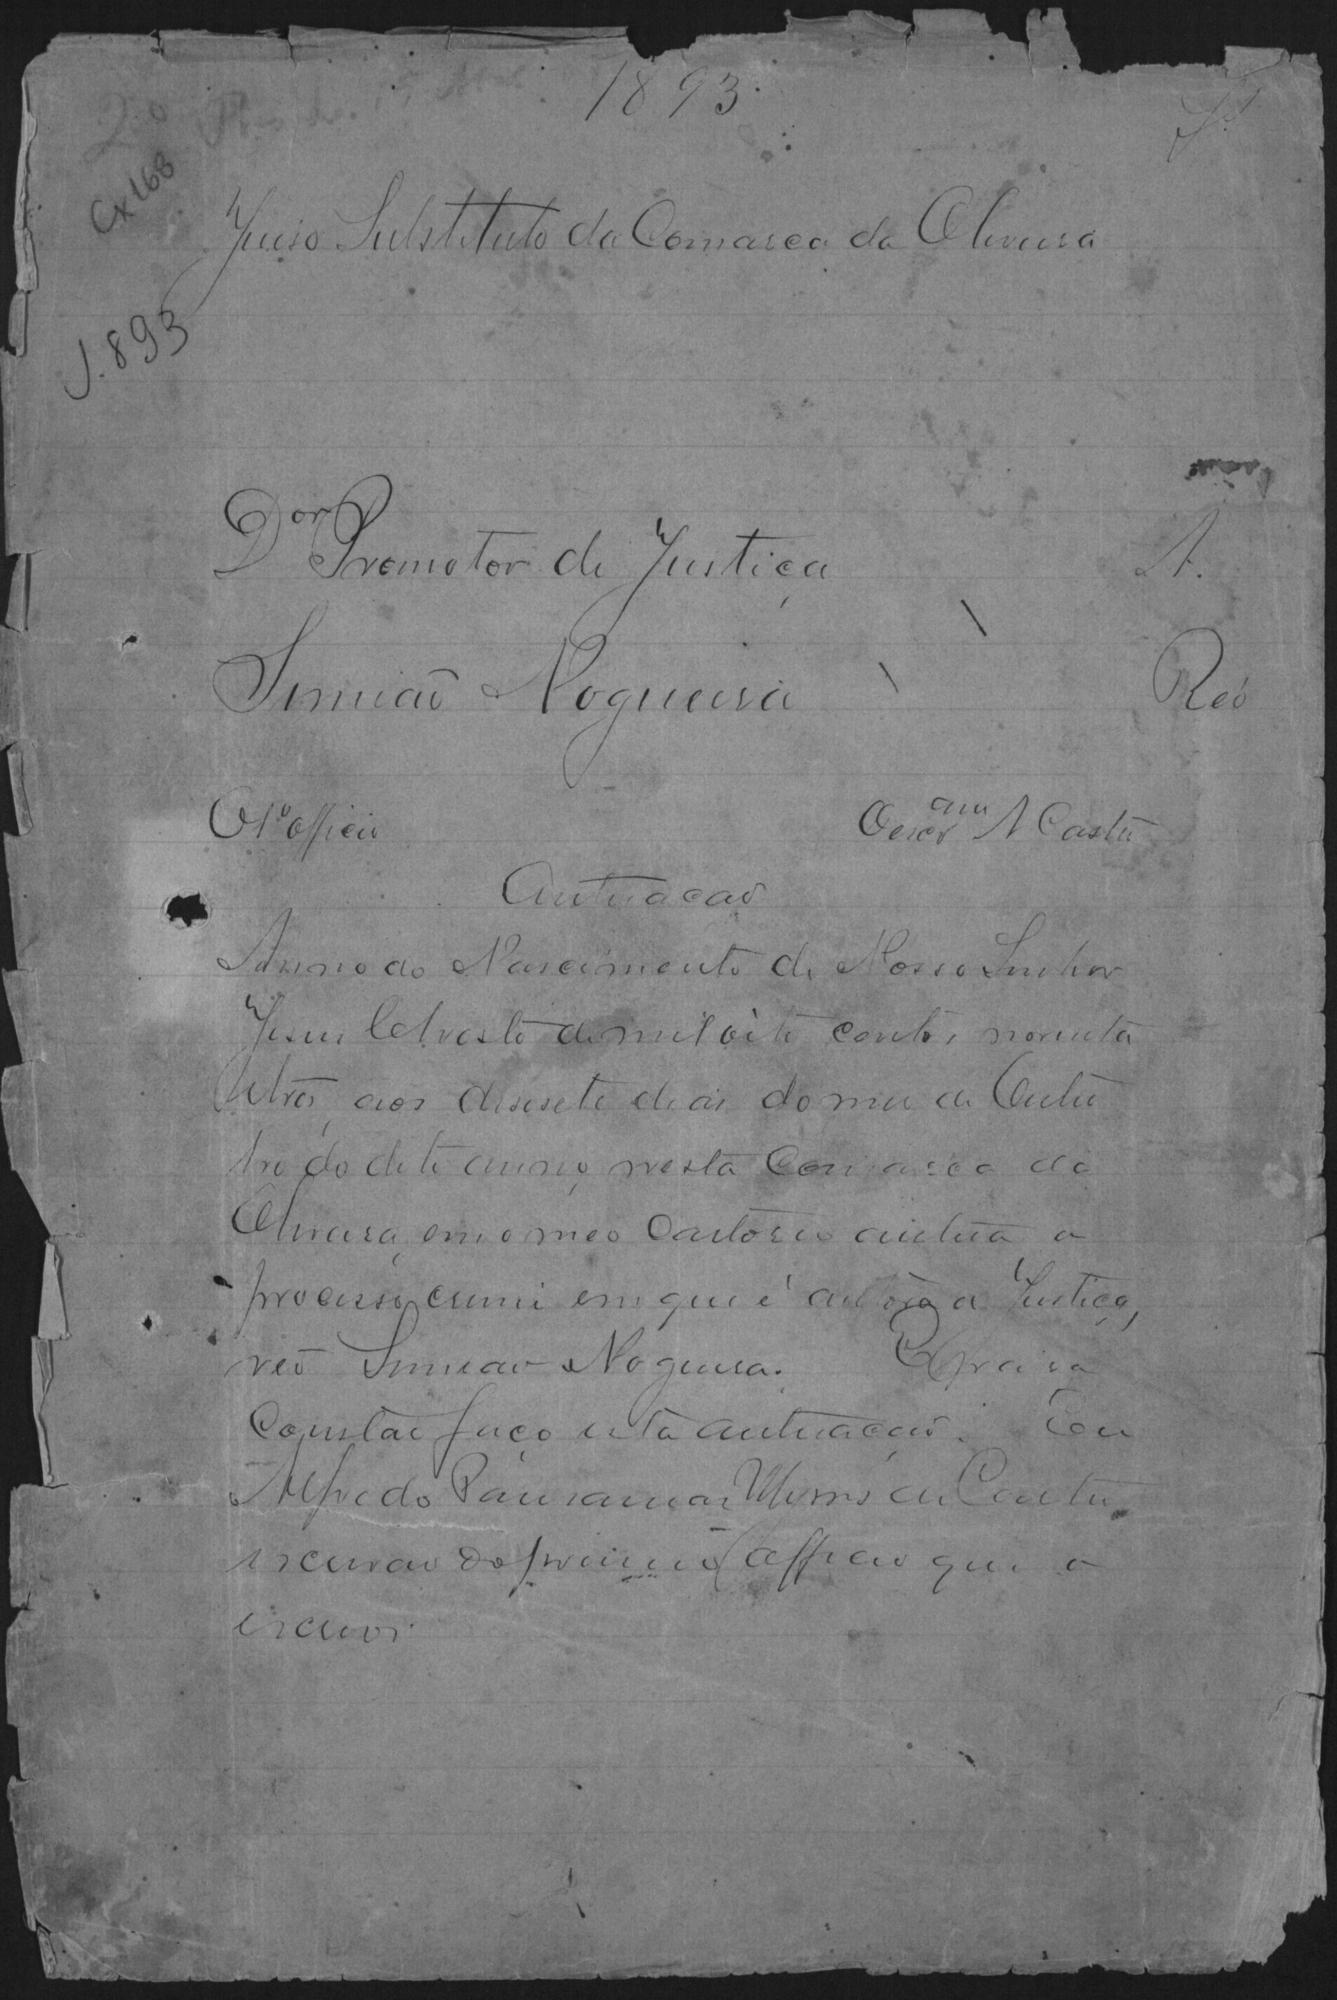 1893
Cx 168
J. 893
Juiso Substituto da Comarca da Oliveira
Dor Promotor de Justiça A.
Simião Nogueira Reo
O 1º officio
Autuacao
Anno do Nascimento de Nosso Senhor
Jesus Christo de mil oito centos noventa
e tres, aos desesete dias do mez de Outu
bro do dito anno, nesta Comarca da
Oliveira, em o meo Cartorio autuei o
processo crime em que é autora a Justiça,
reo Simiao Nogueira. E para
constar faço esta autuação. Eu
Alfredo
escrivao do primeiro officio que o
escrevi.